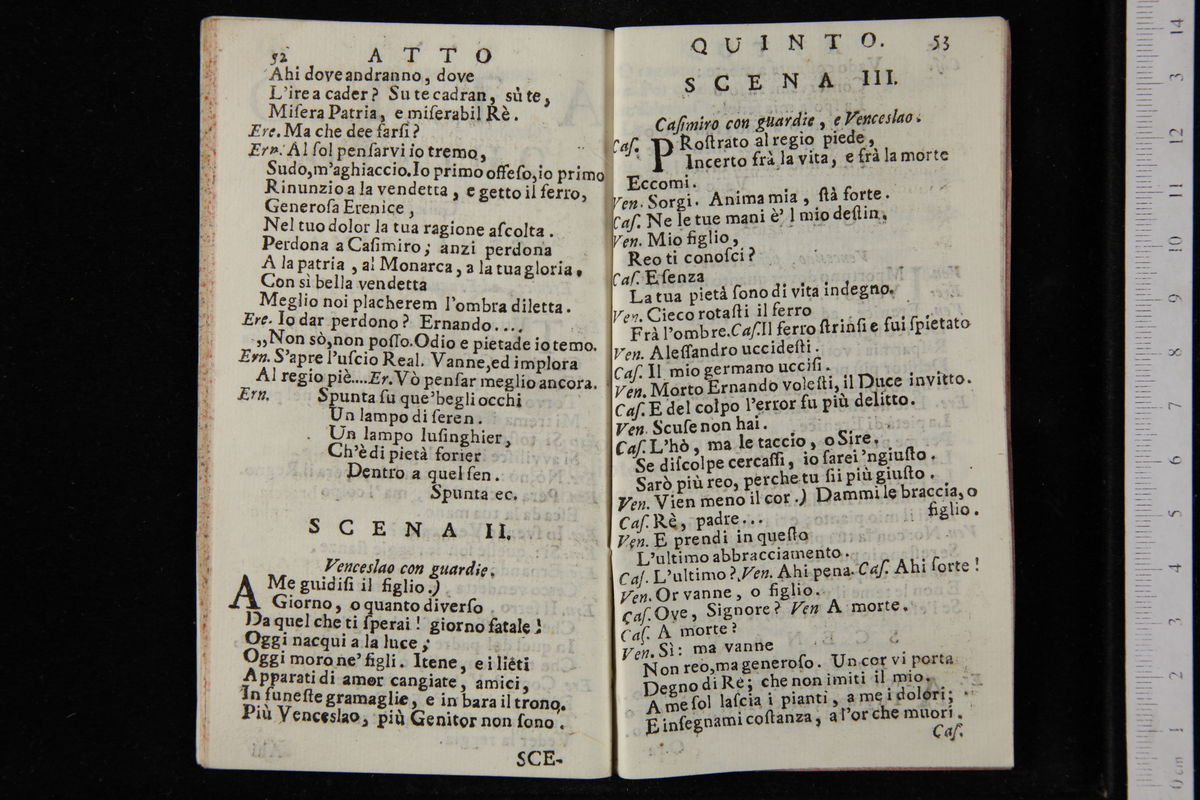 52 ATTO
Ahi dove andranno, dove
L'ire a cader? Su te cadran, sù te,
Miſera Patria, e miſerabil Rè.
Ere. Ma che dee farſi?
Ern. Al ſol penſarvi io tremo,
Sudo, m'aghiaccio. Io primo offeſo, io primo
Rinunzio a la vendetta, e getto il ferro,
Generoſa Erenice,
Nel tuo dolor la tua ragione aſcolta.
Perdona a Caſimiro; anzi perdona
A la patria, al Monarca, a la tua gloria.
Con sì bella vendetta
Meglio noi placherem l'ombra diletta.
Ere. Io dar perdono? Ernando....
„Non sò, non poſſo. Odio e pietade io temo.
Ern. S'apre l'uſcio Real. Vanne, ed implora
Al regio piè.... Er. Vò penſar meglio ancora.
Ern. Spunta ſu que' begli occhi
Un lampo di ſeren.
Un lampo luſinghier,
Ch'è di pietà forier
Dentro a quel ſen.
Spunta ec.
SCENA II.
Venceslao con guardie.
A Me guidiſi il figlio.)
Giorno, o quanto diverſo
Da quel che ti ſperai! giorno fatale!
Oggi nacqui a la luce;
Oggi moro ne' figli. Itene, e i liêti
Apparati di amor cangiate, amici,
In funeſte gramaglie, e in bara il trono.
Più Venceslao, più Genitor non ſono.
SCE-
QUINTO. 53
SCENA III.
Caſimiro con guardie, e Venceslao.
Caſ. PRoſtrato al regio piede,
Incerto frà la vita, e frà la morte
Eccomi.
Ven. Sorgi. Anima mia, ſtà forte.
Caſ. Ne le tue mani è' l mio deſtin.
Ven. Mio figlio,
Reo ti conoſci?
Caſ. E ſenza
La tua pietà ſono di vita indegno.
Ven. Cieco rotaſti il ferro
Frà l'ombre. Caſ. Il ferro ſtrinſi e fui ſpietato
Ven. Aleſſandro uccideſti.
Caſ. Il mio germano ucciſi.
Ven. Morto Ernando voleſti, il Duce invitto.
Caſ. E del colpo l'error fu più delitto.
Ven. Scuſe non hai.
Caſ. L'hò, ma le taccio, o Sire.
Se diſcolpe cercaſſi, io ſarei 'ngiuſto.
Sarò più reo, perche tu ſii più giuſto.
Ven. Vien meno il cor.) Dammi le braccia, o
figlio.
Caſ. Rè, padre...
Ven. E prendi in queſto
L'ultimo abbracciamento.
Caſ. L'ultimo? Ven. Ahi pena. Caſ. Ahi ſorte!
Ven. Or vanne, o figlio.
Caſ. Ove, Signore? Ven A morte.
Caſ. A morte?
Ven. Sì: ma vanne
Non reo, ma generoſo. Un cor vi porta
Degno di Rè; che non imiti il mio.
A me ſol laſcia i pianti, a me i dolori;
E inſegnami coſtanza, a l'or che muori.
Caſ.
0 cm 1 2 3 4 5 6 7 8 9 10 11 12 13 14